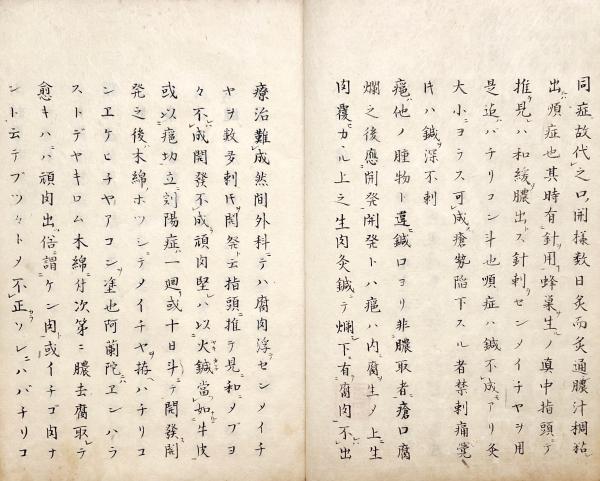 同症故代之口開様数日灸而灸通膿汁稠粘
出煩症也其時有針用蜂巣生ノ真中指頭テ
推見ハ和緩膿出ス針刺センメイチヤヲ用
是迠バチリコン斗也煩症ハ鍼不成アリ灸
大小ヨラス可成瘡勢陥下スル者禁刺痛覚
氏ハ鍼深不刺
疤他ノ腫物ト違鍼口ヨリ非膿取者瘡口腐
爛之後應開発開発トハ疤ハ内腐生ノ上生
肉覆カヽル上之生肉灸鍼テ爛下有腐肉不出
療治難成然間外科テハ腐肉浮センメイチ
ヤヲ数多刺氏開発云指頭推テ見和メブヨ
々不成開発不成頑肉堅ハ以火鍼當如牛皮
或以疤切立刻陽症一廻或十日斗テ開發開
発之後木綿ホツシテメイチヤ拵バチリコ
ンエケヒチヤアコン塗也阿蘭陀エンハラ
ストデヤキロム木綿付次第ニ膿去腐取テ
愈キハハ頑肉出俗謂ケン肉或イチゴ肉ナ
ント云テブツ々トメ不正ソレニハバチリコ